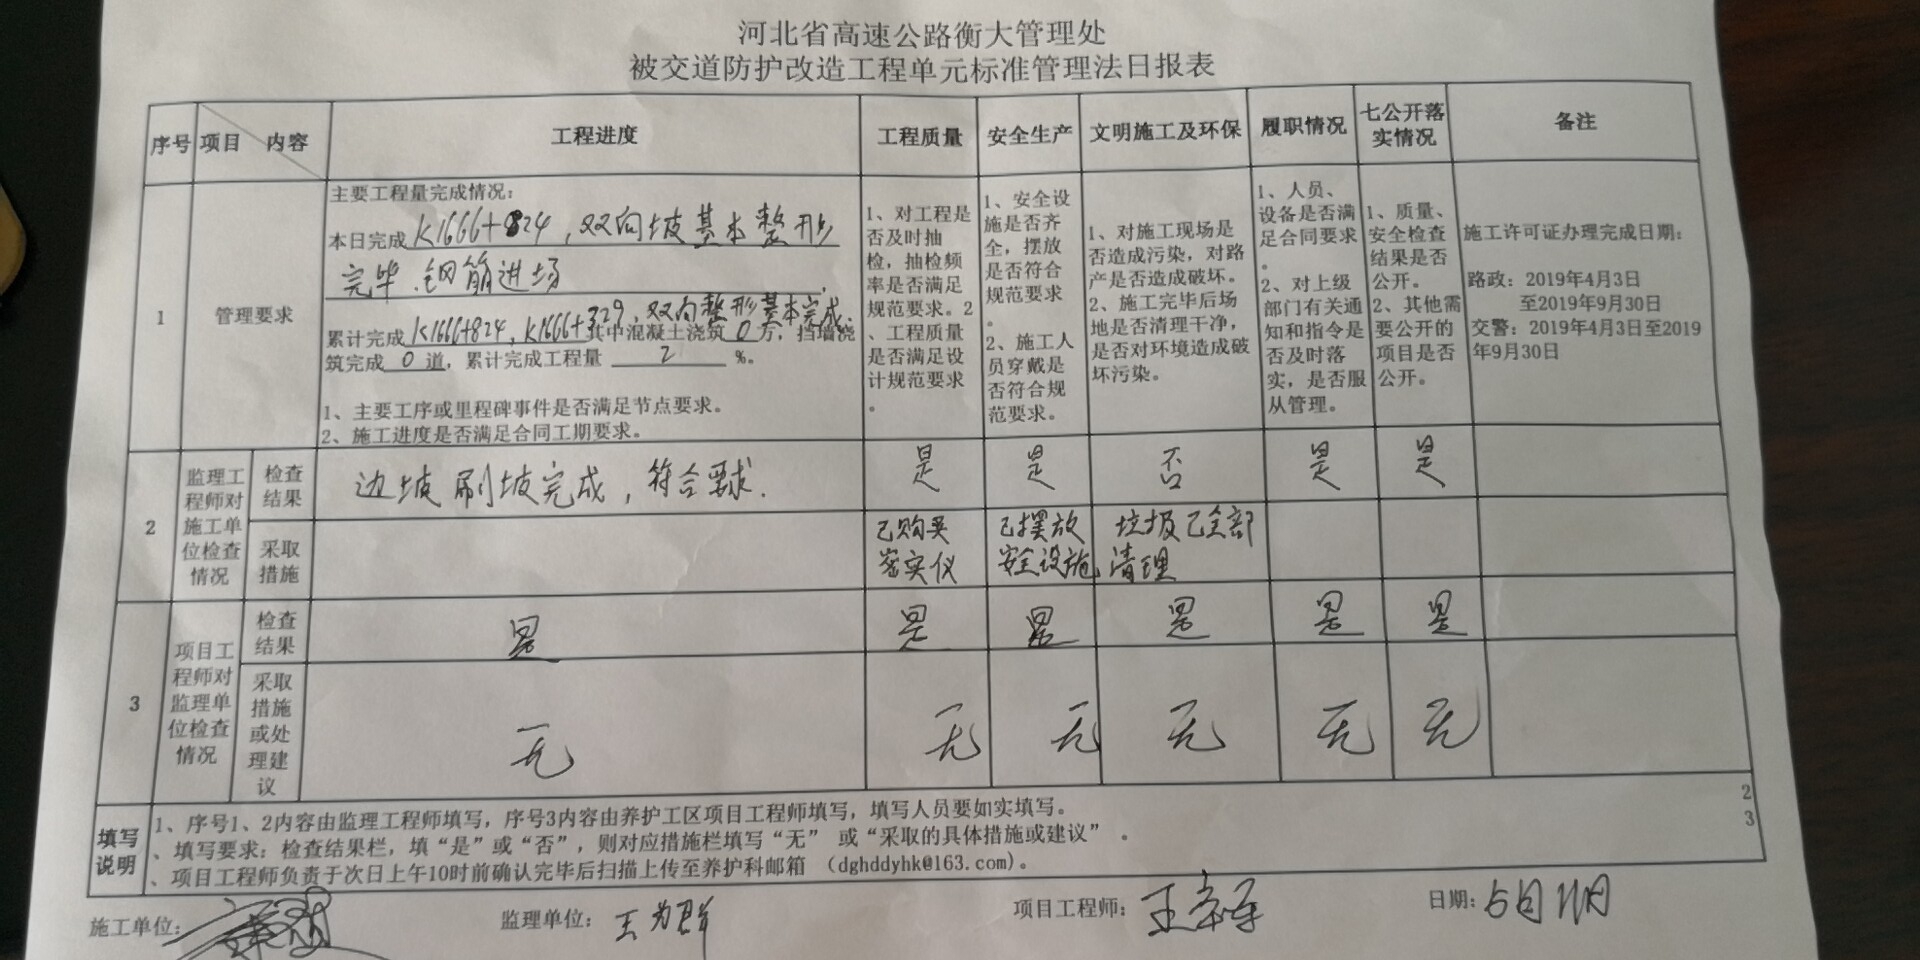 河北省高速公路衡大管理处
被交道防护改造工程单元标准管理法日报表
序号 项目 内容 工程进度 工程质量 安全生产 文明施工及环保 履职情况 七公开落实情况 备注
1 管理要求
主要工程量完成情况：
本日完成 K1666+824，双向坡基本整形
完毕.钢筋进场
累计完成 K1666+824，K1666+329，双向整形基本完成. 其中混凝土浇筑 0 方，挡墙浇
筑完成 0 道，累计完成工程量 2 %。
1、主要工序或里程碑事件是否满足节点要求。
2、施工进度是否满足合同工期要求。
1、对工程是
否及时抽
检，抽检频
率是否满足
规范要求。2
、工程质量
是否满足设
计规范要求
。
1、安全设
施是否齐
全，摆放
是否符合
规范要求
。
2、施工人
员穿戴是
否符合规
范要求。
1、对施工现场是
否造成污染，对路
产是否造成破坏。
2、施工完毕后场
地是否清理干净，
是否对环境造成破
坏污染。
1、人员、
设备是否满
足合同要求
。
2、对上级
部门有关通
知和指令是
否及时落
实，是否服
从管理。
1、质量、
安全检查
结果是否
公开。
2、其他需
要公开的
项目是否
公开。
施工许可证办理完成日期：
路政：2019年4月3日
至2019年9月30日
交警：2019年4月3日至2019
年9月30日
2
监理工
程师对
施工单
位检查
情况
检查
结果
边坡刷坡完成，符合要求.
是 是 否 是 是
采取
措施
已购买
密实仪
已摆放
安全设施
垃圾已全部
清理
3
项目工
程师对
监理单
位检查
情况
检查
结果
是 是 是 是 是 是
采取
措施
或处
理建
议
无 无 无 无 无 无
填写
说明
1、序号1、2内容由监理工程师填写，序号3内容由养护工区项目工程师填写，填写人员要如实填写。 2
、填写要求：检查结果栏，填“是”或“否”，则对应措施栏填写“无” 或“采取的具体措施或建议” 。 3
、项目工程师负责于次日上午10时前确认完毕后扫描上传至养护科邮箱 （dghddyhk@163.com）。
施工单位： 监理单位：王为群 项目工程师： 日期：5月